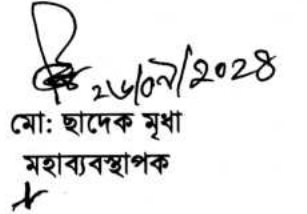 ২৬/০৭/২০২৪
মো: ছাদেক মৃধা
মহাব্যবস্থাপক